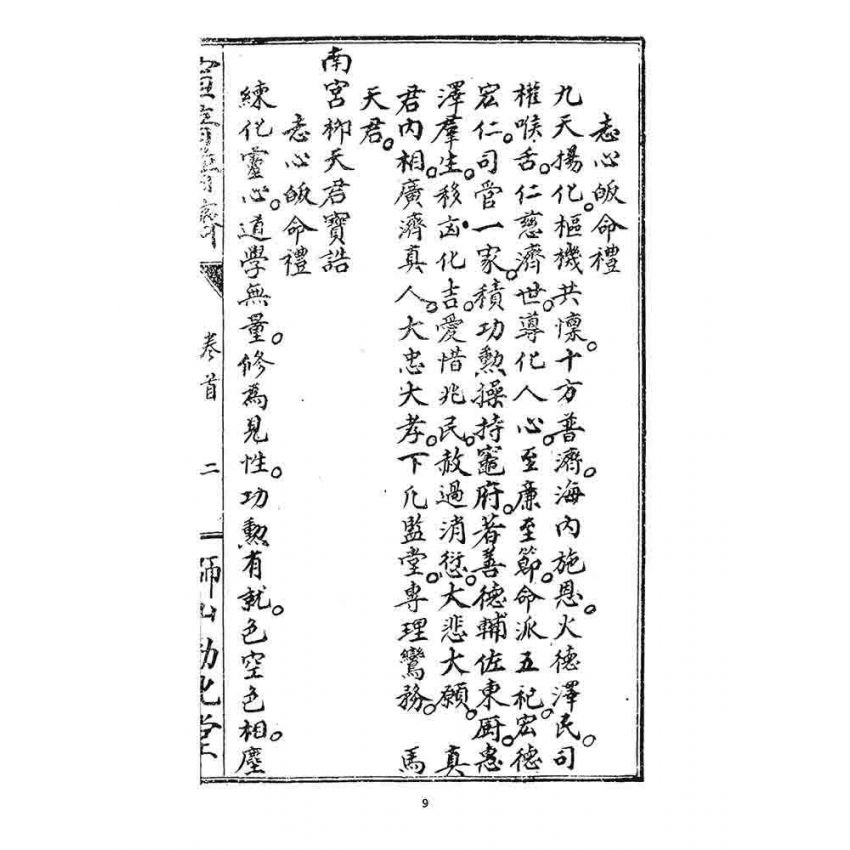 志心皈命禮
九天揚化。樞機共懍。十方普濟。海內施恩。火德澤民。司
權喉舌。仁慈濟世。導化人心。至廉至節。命派五祀。宏德
宏仁。司管一家。積功勲。操持竈府。著善德輔佐東厨。惠
澤羣生。移凶化吉。愛惜兆民。赦過消愆。大悲大願。真
君內相。廣濟真人。大忠大孝。下凡監堂。專理鸞務。馬
天君。
南宮柳天君寶誥
志心皈命禮
練化靈心。道學無量。修為見性。功勲有就。色空色相。塵
卷首
二
9